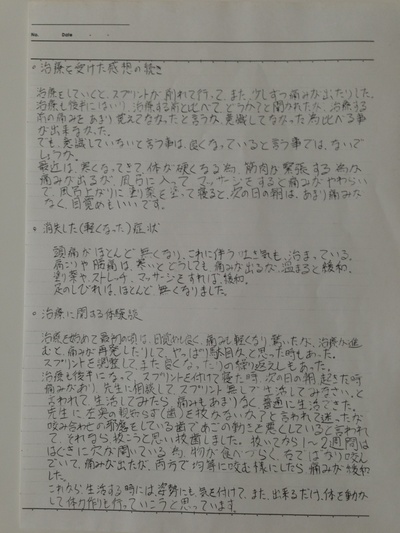 No.　Date　・　・
○ 治療を受けた感想の続き
治療をしていくと、スプリントが削れて行って、また、少しずつ痛みが出たりした。
治療も後半にはいり、治療する前と比べて、どうかなと聞かれたが、治療する
前の痛みをあまり覚えてなかったと言うか、意識してなかった為比べる事
が出来なかった。
でも、意識していないと言う事は、良くなっていると言う事では、ないで
しょうか。
最近は、寒くなってきて、体が硬くなる為、筋肉が緊張する為か
痛みが出るが、風呂に入って、マッサージをすると痛みがやわらい
で、風呂上がりに塗り薬を塗って寝ると、次の日の朝は、あまり痛みが
なく、目覚めもいいです。
○ 消失した(軽くなった)症状
頭痛がほとんど無くなり、これに伴う吐き気も、治まっている。
肩こりや腰痛は、寒いとどうしても痛みが出るが、温まると緩和。
塗り薬やストレッチ、マッサージをすれば、緩和。
足のしびれは、ほとんど無くなりました。
○ 治療に関する体験談
治療を始めて最初の頃は、目覚めも良く、痛みも軽くなり驚いたが、治療が進
むと、痛みが再発したりして、やっぱり駄目かなと思った時もあった。
スプリントを調整してまた良くなったりの繰り返しもあった。
治療も後半になって、スプリントを付けて寝た時、次の日の朝起きた時
痛みがあり、先生に相談してスプリント無しで生活してみなさい、と
言われて生活してみたら、痛みもあまりなく普通に生活できた。
先生に左奥の親知らず(歯)を抜かないか？と言われて迷ったが
咬み合わせの邪魔をしている歯であごの動きを悪くしていると言われ
て、それなら抜こうと思い抜歯しました。抜いてから1～2週間は
はぐきに穴が開いている為、物が食べづらく、右でばかり咬ん
でいて、痛みが出たが、両方で均等に咬む様にしたら痛みが緩和
した。
これから生活する時には、姿勢にも気を付けて、また、出来るだけ、体を動か
して体力作りも行っていこうと思っています。